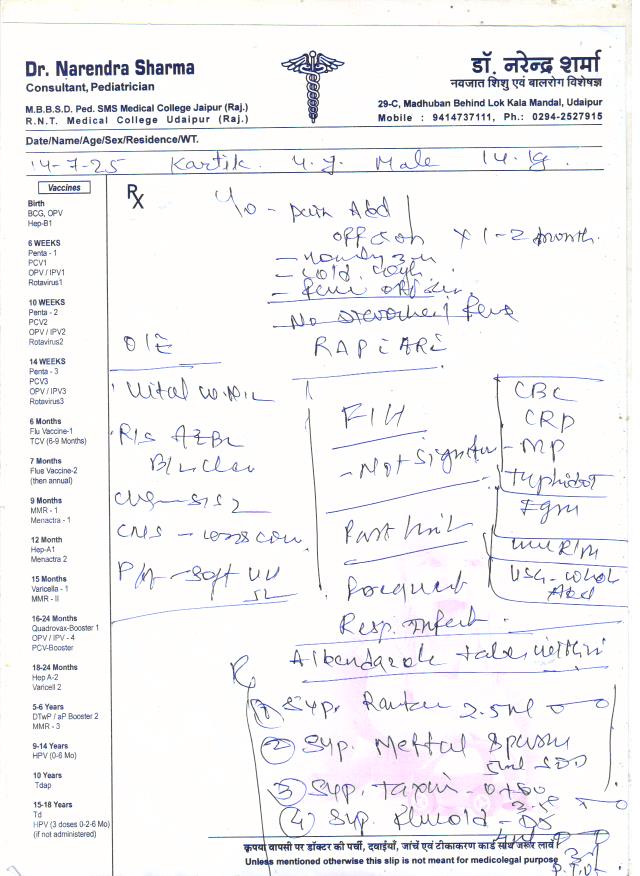 Dr. Narendra Sharma
Consultant, Pediatrician
M.B.B.S.D. Ped. SMS Medical College Jaipur (Raj.)
R.N.T. Medical College Udaipur (Raj.)
डॉ. नरेन्द्र शर्मा
नवजात शिशु एवं बालरोग विशेषज्ञ
29-C, Madhuban Behind Lok Kala Mandal, Udaipur
Mobile : 9414737111, Ph.: 0294-2527915
Date/Name/Age/Sex/Residence/WT.
14-7-25 Kartik 4. y. Male 14. kg.
Vaccines
Birth
BCG, OPV
Hep-B1
6 WEEKS
Penta - 1
PCV1
OPV / IPV1
Rotavirus1
10 WEEKS
Penta - 2
PCV2
OPV / IPV2
Rotavirus2
14 WEEKS
Penta - 3
PCV3
OPV / IPV3
Rotavirus3
6 Months
Flu Vaccine-1
TCV (6-9 Months)
7 Months
Flue Vaccine-2
(then annual)
9 Months
MMR - 1
Menactra - 1
12 Month
Hep-A1
Menactra 2
15 Months
Varicella - 1
MMR - II
16-24 Months
Quadrovax-Booster 1
OPV / IPV - 4
PCV-Booster
18-24 Months
Hep A-2
Varicell 2
5-6 Years
DTwP / aP Booster 2
MMR - 3
9-14 Years
HPV (0-6 Mo)
10 Years
Tdap
15-18 Years
Td
HPV (3 doses 0-2-6 Mo)
(if not administered)
Rx
pain Abd
off & on x 1-2 month.
- cold
- No
O/E RAP ARI
Vital
R/S
B/L clear
CNS -
P/A - soft
F/H
- Not
Past
Frequent
Resp. infect.
CBC
CRP
- MP
Typhidot
IgM
USG - whole
Abd
Albendazole taken
① Syp. 2.5 ml
② Syp. Meftal Spasm
5ml SOS
③ Syp. Taxim - O
④ Syp.
कृपया वापसी पर डॉक्टर की पर्ची, दवाईयाँ, जांचें एवं टीकाकरण कार्ड साथ जरूर लावें
Unless mentioned otherwise this slip is not meant for medicolegal purpose
P.T.O.